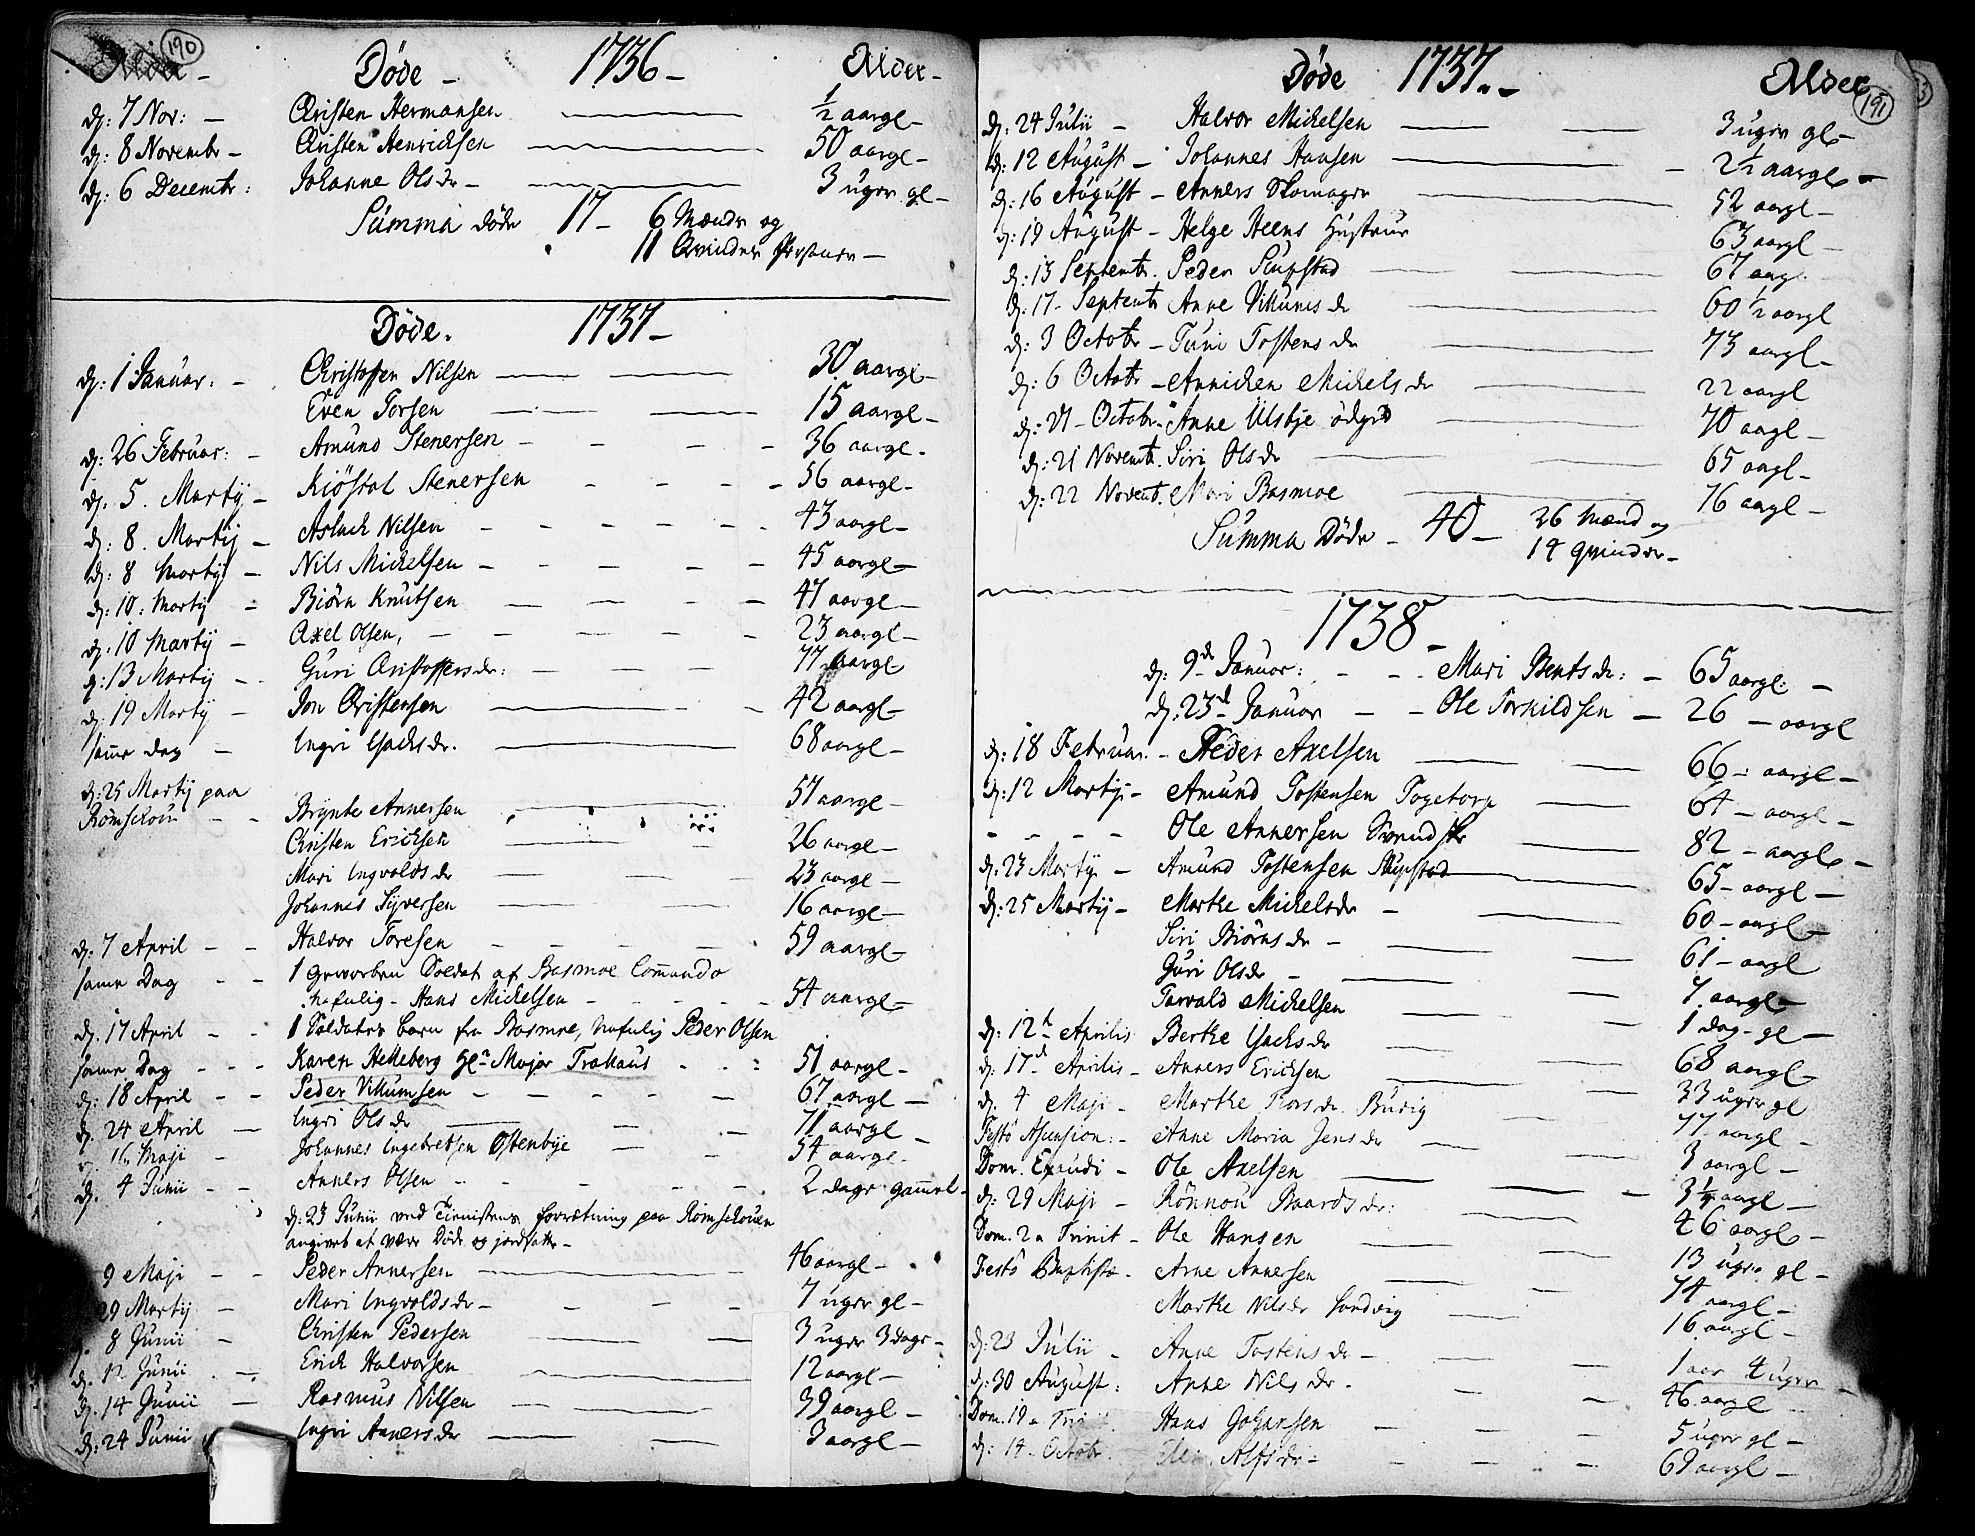 190
Døde - 1736 - Alder -
d: 7 Nov: - Christen Hermansen ½ aargl -
d: 8 Novembr - Christen Henrichsen 50 aargl -
d: 6 Decembr: Johanne Olsdr - 3 uger gl -
Summa døde 17 - 6 Mænder og
11 Qvinder Persohner -
Døde. 1737 -
d: 1 Januar: - Christoffen Nilsen 30 aargl -
Even Torsen 15 aargl -
d: 26 Februar: - Amund Stenersen - 36 aargl -
d. 5. Martij - Kiöstol Stenersen - 56 aargl -
d: 8. Martij - Aslach Nilsen - 43 aargl -
d: 8 Martij - Nils Michelsen - 45 aargl -
d: 10: Martij - Biörn Knutsen 47 aargl -
d: 10 Martij - Axel Olsen, - 23 aargl -
d: 13 Martij - Guri Christoffersdr: 77 aargl
d: 19 Martij - Jon Christensen 42 aargl -
samme dag - Ingri Isachsdr. 68 aargl -
d: 25 Martij paa
Römschou - - Brynte Annersen 57 aargl -
Christen Erichsen 26 aargl -
Mari Ingvoldsdr 23 aargl -
Johannes Syversen 16 aargl -
d. 7 April - - Halvor Toresen 59 aargl -
samme Dag - - 1 geworben Soldat af Basmoe Commando
nafnlig - Hans Michelsen - 54 aargl -
d. 17 April - - 1 Soldater barn fra Basmoe, nafnlig Peder Olsen
samme Dag - - - Karen Helleberg Major 51 aargl -
d: 18 April - - Peder Villumsen - 67 aargl -
d. 24 April - Ingri Olsdr 71 aargl -
16 Maji - Johannes Ingebretsen Ostenbye 54 aargl.
d. 4 Junii - - Anners Olsen - 2 dage gammel -
d: 23 Junii ved Tienistens forrætning paa Römschouen
angivet at være Døde og jordsatte -
9 Maji - - Peder Annersen 46 aargl -
29 Martij - Mari Ingvoldsdr - 7 uger gl -
8 Junii - Christen Pedersen 3 uger 3 dage -
d. 12 Junii - Erich Halvorsen 12 aargl -
d. 14 Junii - Rasmus Nilsen 39 aargl -
d: 24 Junii Ingri Annersdr 3 aargl -
191
Døde 1737. - Alder
d: 24 Julii - Halvor Michelsen 3 uger gl -
d: 12 August - Johannes Hansen 2½ aargl -
d: 16 August - Anners Skomager 52 aargl -
d: 19 August - Helge Heens Hustrue 63 aargl -
d: 13 Septembr. Peder Slupstad 67 aargl.
d: 17 - Septembr Anne Villumsdr 60½ aargl
d: 3 Octobr - Tuni Tostensdr 73 aargl -
d: 6 Octobr - Annichen Michelsdr 22 aargl
d: 21 - Octobr. - Anne Ulsbye ödegrd 70 aargl -
d: 21 Novemb. Siri Olsdr 65 aargl -
d: 22 Novemb. Mari Basmoe 76 aargl -
Summa Döde - 40 - 26 Mænd og
14 qvinder -
1738 -
d: 9de Januar: - - Mari Bentsdr: - 65 aargl: -
d: 23d Januar - - Ole Torkildsen - 26 - aargl
d: 18 Februar. - Peder Axelsen 66 - aargl -
d: 12 Martij - Amund Tostensen Togetorp 64 - aargl -
- - - - Ole Annersen 82 - aargl -
d: 23 Martij - Amund Tostensen Slupstad 65 - aargl -
d: 25 Martij - Marthe Michelsdr - 60 - aargl -
Siri Biörnsdr - 61 - aargl
Guri Olsdr - 7 aargl -
Torvald Michelsen 1 dag - gl -
d: 12te Aprilis Berthe Isachsdr 68 aargl -
d: 17d Aprilis - Anners Erichsen 33 uger gl
d. 4 Maji - Marthe Torsdr. Buvig 77 aargl -
Festo Ascension: - Anne Maria Jensdr 3 aargl -
Dom. Exaudi - Ole Axelsen 3½ aargl -
d: 29 Maji - Rönnou Baardsdr: 46 aargl -
Dom. 2 a Trinit - Ole Hansen 13 uger gl -
Festo Baptistæ - Arne Annersen 74 aargl -
Marthe Nilsdr Sandvig 16 aargl -
d: 23 Julii - Anne Tostensdr - 1 aar 4 uger -
d: 30 August: Anne Nilsdr. 46 aargl -
Dom. 19 a Trinit Hans Johansen 5 uger gl -
d: 14 - Octobr. Alfsdr - 69 aargl -